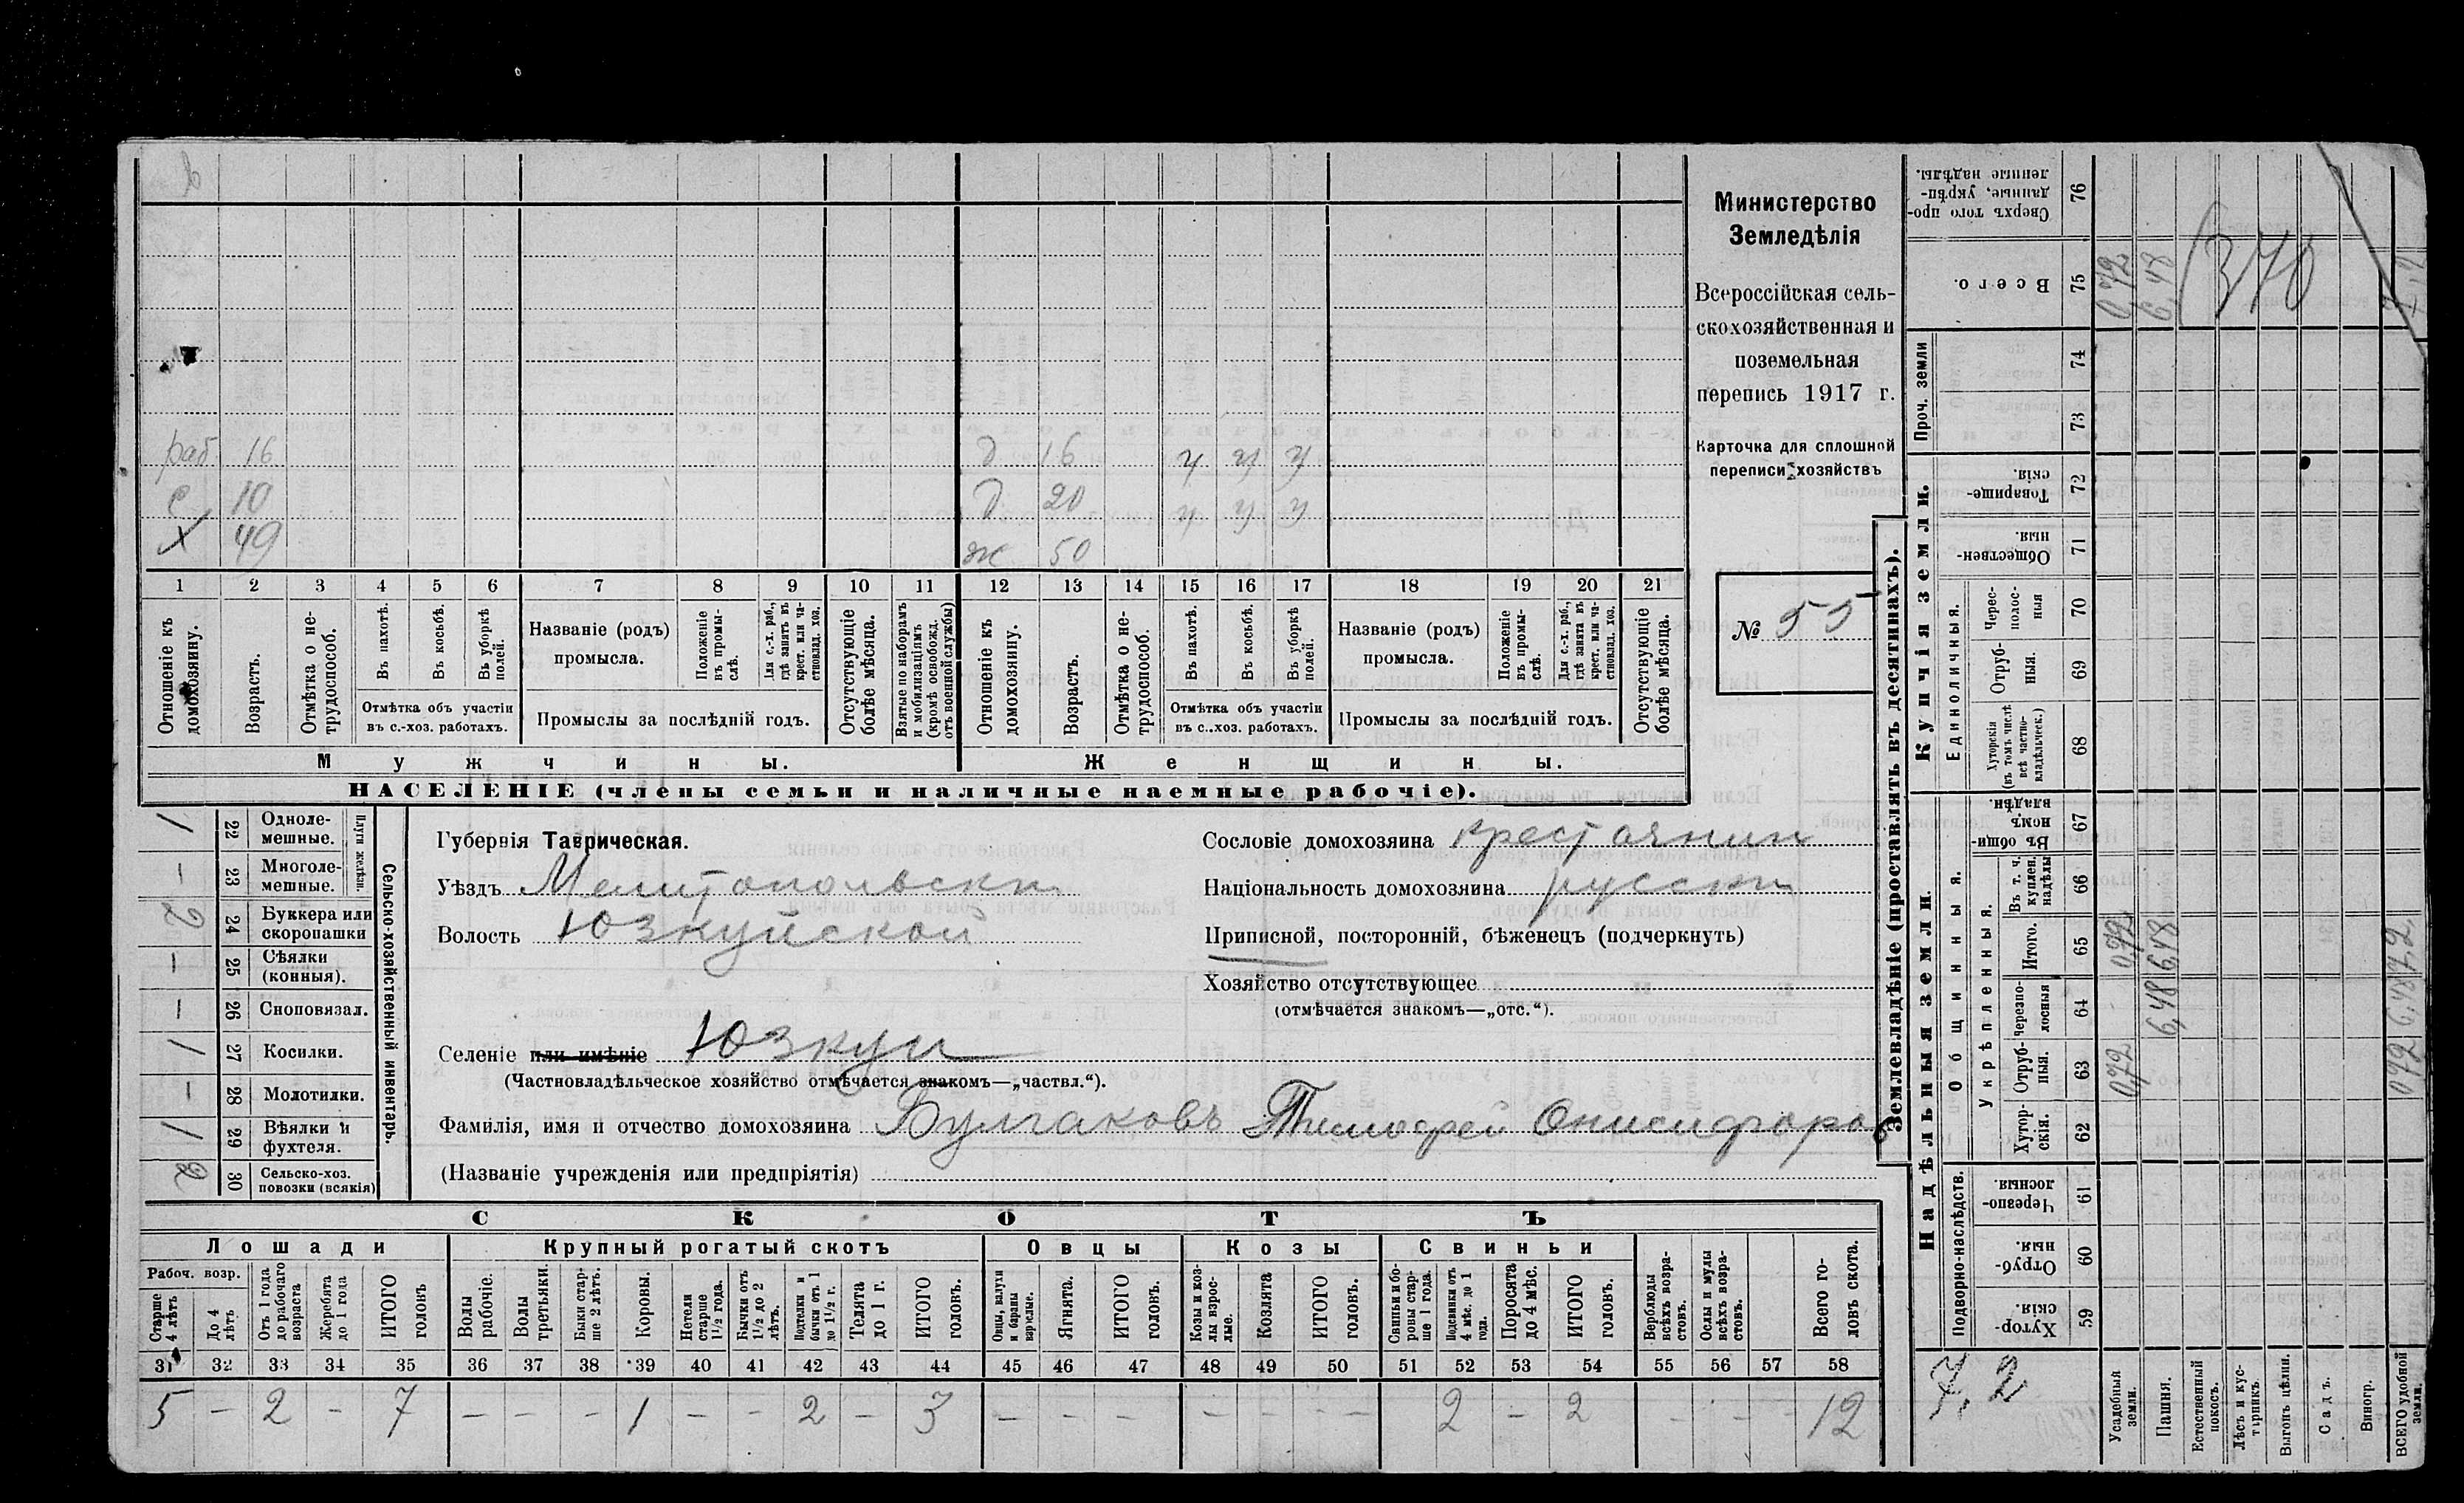 раб. 16 д 16 у у у
с 10 д 20 у у у
х 49 ж 50
1 2 3 4 5 6 7 8 9 10 11 12 13 14 15 16 17 18 19 20 21
Отношеніе къ домохозяину.
Возрастъ.
Отмѣтка о нетрудоспособ.
Въ пахотѣ.
Въ косьбѣ.
Въ уборкѣ полей.
Отмѣтка объ участіи
въ с.-хоз. работахъ.
Названіе (родъ)
промысла.
Положеніе въ промыслѣ.
Для с.-х. раб., гдѣ занятъ въ крест. или частновлад. хоз.
Промыслы за послѣдній годъ.
Отсутствующіе болѣе мѣсяца.
Взятые по наборамъ и мобилизаціямъ (кромѣ освобожд. отъ военной службы)
Отношеніе къ домохозяину.
Возрастъ.
Отмѣтка о нетрудоспособ.
Въ пахотѣ.
Въ косьбѣ.
Въ уборкѣ полей.
Отмѣтка объ участіи
въ с..хоз. работахъ.
Названіе (родъ)
промысла.
Положеніе въ промыслѣ.
Для с.-х. раб., гдѣ занята въ крест. или частновлад. хоз.
Промыслы за послѣдній годъ.
Отсутствующіе болѣе мѣсяца.
Мужчины. Женщины.
НАСЕЛЕНІЕ (члены семьи и наличные наемные рабочіе).
Министерство
Земледѣлія
Всероссійская сель-
скохозяйственная и
поземельная
перепись 1917 г.
Карточка для сплошной
переписи хозяйствъ
№ 55
Сельско-хозяйственный инвентарь.
Плуги желѣзн.
/ 22 Одноле-
мешные.
— 23 Многоле-
мешные.
2 24 Буккера или
скоропашки
— 25 Сѣялки
(конныя).
— 26 Сноповязал.
/ 27 Косилки.
— 28 Молотилки.
/ 29 Вѣялки и
фухтеля.
2 30 Сельско-хоз.
повозки (всякія)
Губернія Таврическая.
Уѣздъ Мелитопольскій
Волость Юзкуйской
Сословіе домохозяина крестьянин
Національность домохозяина русскій
Приписной, посторонній, бѣженецъ (подчеркнуть)
Хозяйство отсутствующее
(отмѣчается знакомъ—„отс.“).
Селеніе или имѣніе Юзкуи
(Частновладѣльческое хозяйство отмѣчается знакомъ—„частвл.“).
Фамилія, имя и отчество домохозяина Булгаковъ Тимофей Онисифоров
(Названіе учрежденія или предпріятія)
СКОТЪ
Лошади Крупный рогатый скотъ Овцы Козы Свиньи
Рабоч. возр.
Старше 4 лѣтъ
До 4 лѣтъ
Отъ 1 года до рабочаго возраста
Жеребята до 1 года
ИТОГО головъ
Волы рабочіе.
Волы третьяки.
Быки старше 2 лѣтъ.
Коровы.
Нетели старше 1 1/2 года.
Бычки отъ 1 1/2 до 2 лѣтъ.
Подтелки и бычки отъ 1 до 1 1/2 г.
Телята до 1 г.
ИТОГО головъ.
Овцы, валухи и бараны взрослые.
Ягнята.
ИТОГО головъ.
Козы и козлы взрослые.
Козлята
ИТОГО головъ.
Свиньи и боровы старше 1 года.
Подсвинки отъ 4 мѣс. до 1 года.
Поросята до 4 мѣс.
ИТОГО головъ.
Верблюды всѣхъ возрастовъ.
Ослы и мулы всѣхъ возрастовъ.
Всего головъ скота.
31 32 33 34 35 36 37 38 39 40 41 42 43 44 45 46 47 48 49 50 51 52 53 54 55 56 57 58
5 — 2 — 7 — — — 1 — — 2 — 3 — — — — — — 2 — 2 — — — 12
Землевладѣніе (проставлять въ десятинахъ).
Купчія земли.
Надѣльныя земли.
Сверхъ того проданные, укрѣпленные надѣлы. 76
Всего. 75 0,72 6,48 370 7,2
Проч. земли
74
73
Товарищескія. 72
Общественныя. 71
Единоличныя.
Чересполосныя 70
Отрубныя. 69
Хуторскія (въ томъ числѣ всѣ частновладѣльческ.) 68
Общинныя.
Въ общинномъ владѣн. 67
Укрѣпленныя.
Въ т. ч. куплен. надѣлы 66
Итого. 65 0,72 6,48 7,2
Черезполосныя 64 6,48 6,48
Отрубныя. 63 0,72 0,72
Хуторскія. 62
Подворно-наслѣдств.
Черезполосныя 61
Отрубныя. 60
Хуторскія 59
7,2
Усадебныя земли.
Пашня.
Естественный покосъ.
Лѣсъ и кустарникъ.
Выгонъ цѣлин.
Садъ.
Виногр.
ВСЕГО удобной земли.